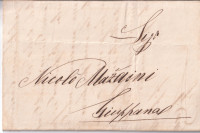 Sigr
Nicolò Mazzini
Giuppana